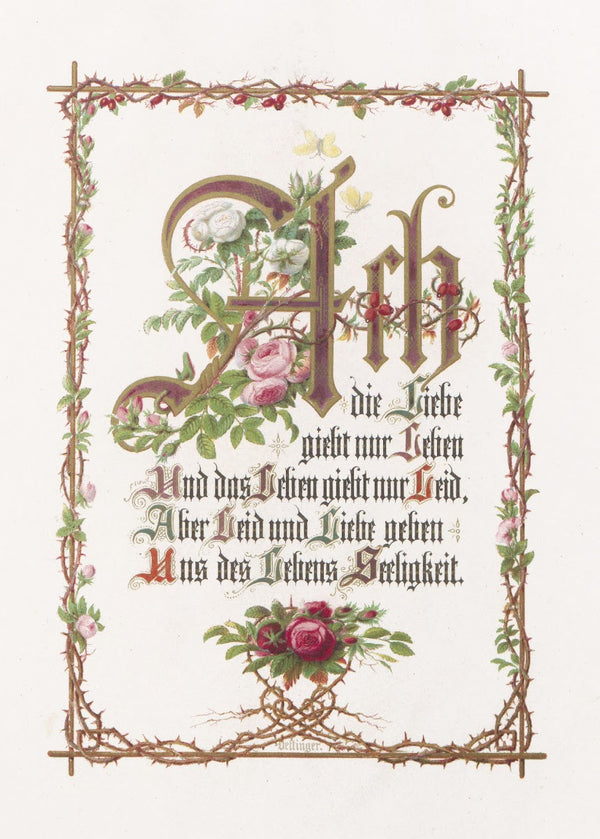 Ach
die Liebe
giebt nur Leben
Und das Leben giebt nur Leid,
Aber Leid und Liebe geben
Uns des Lebens Seeligkeit.
Oettinger.